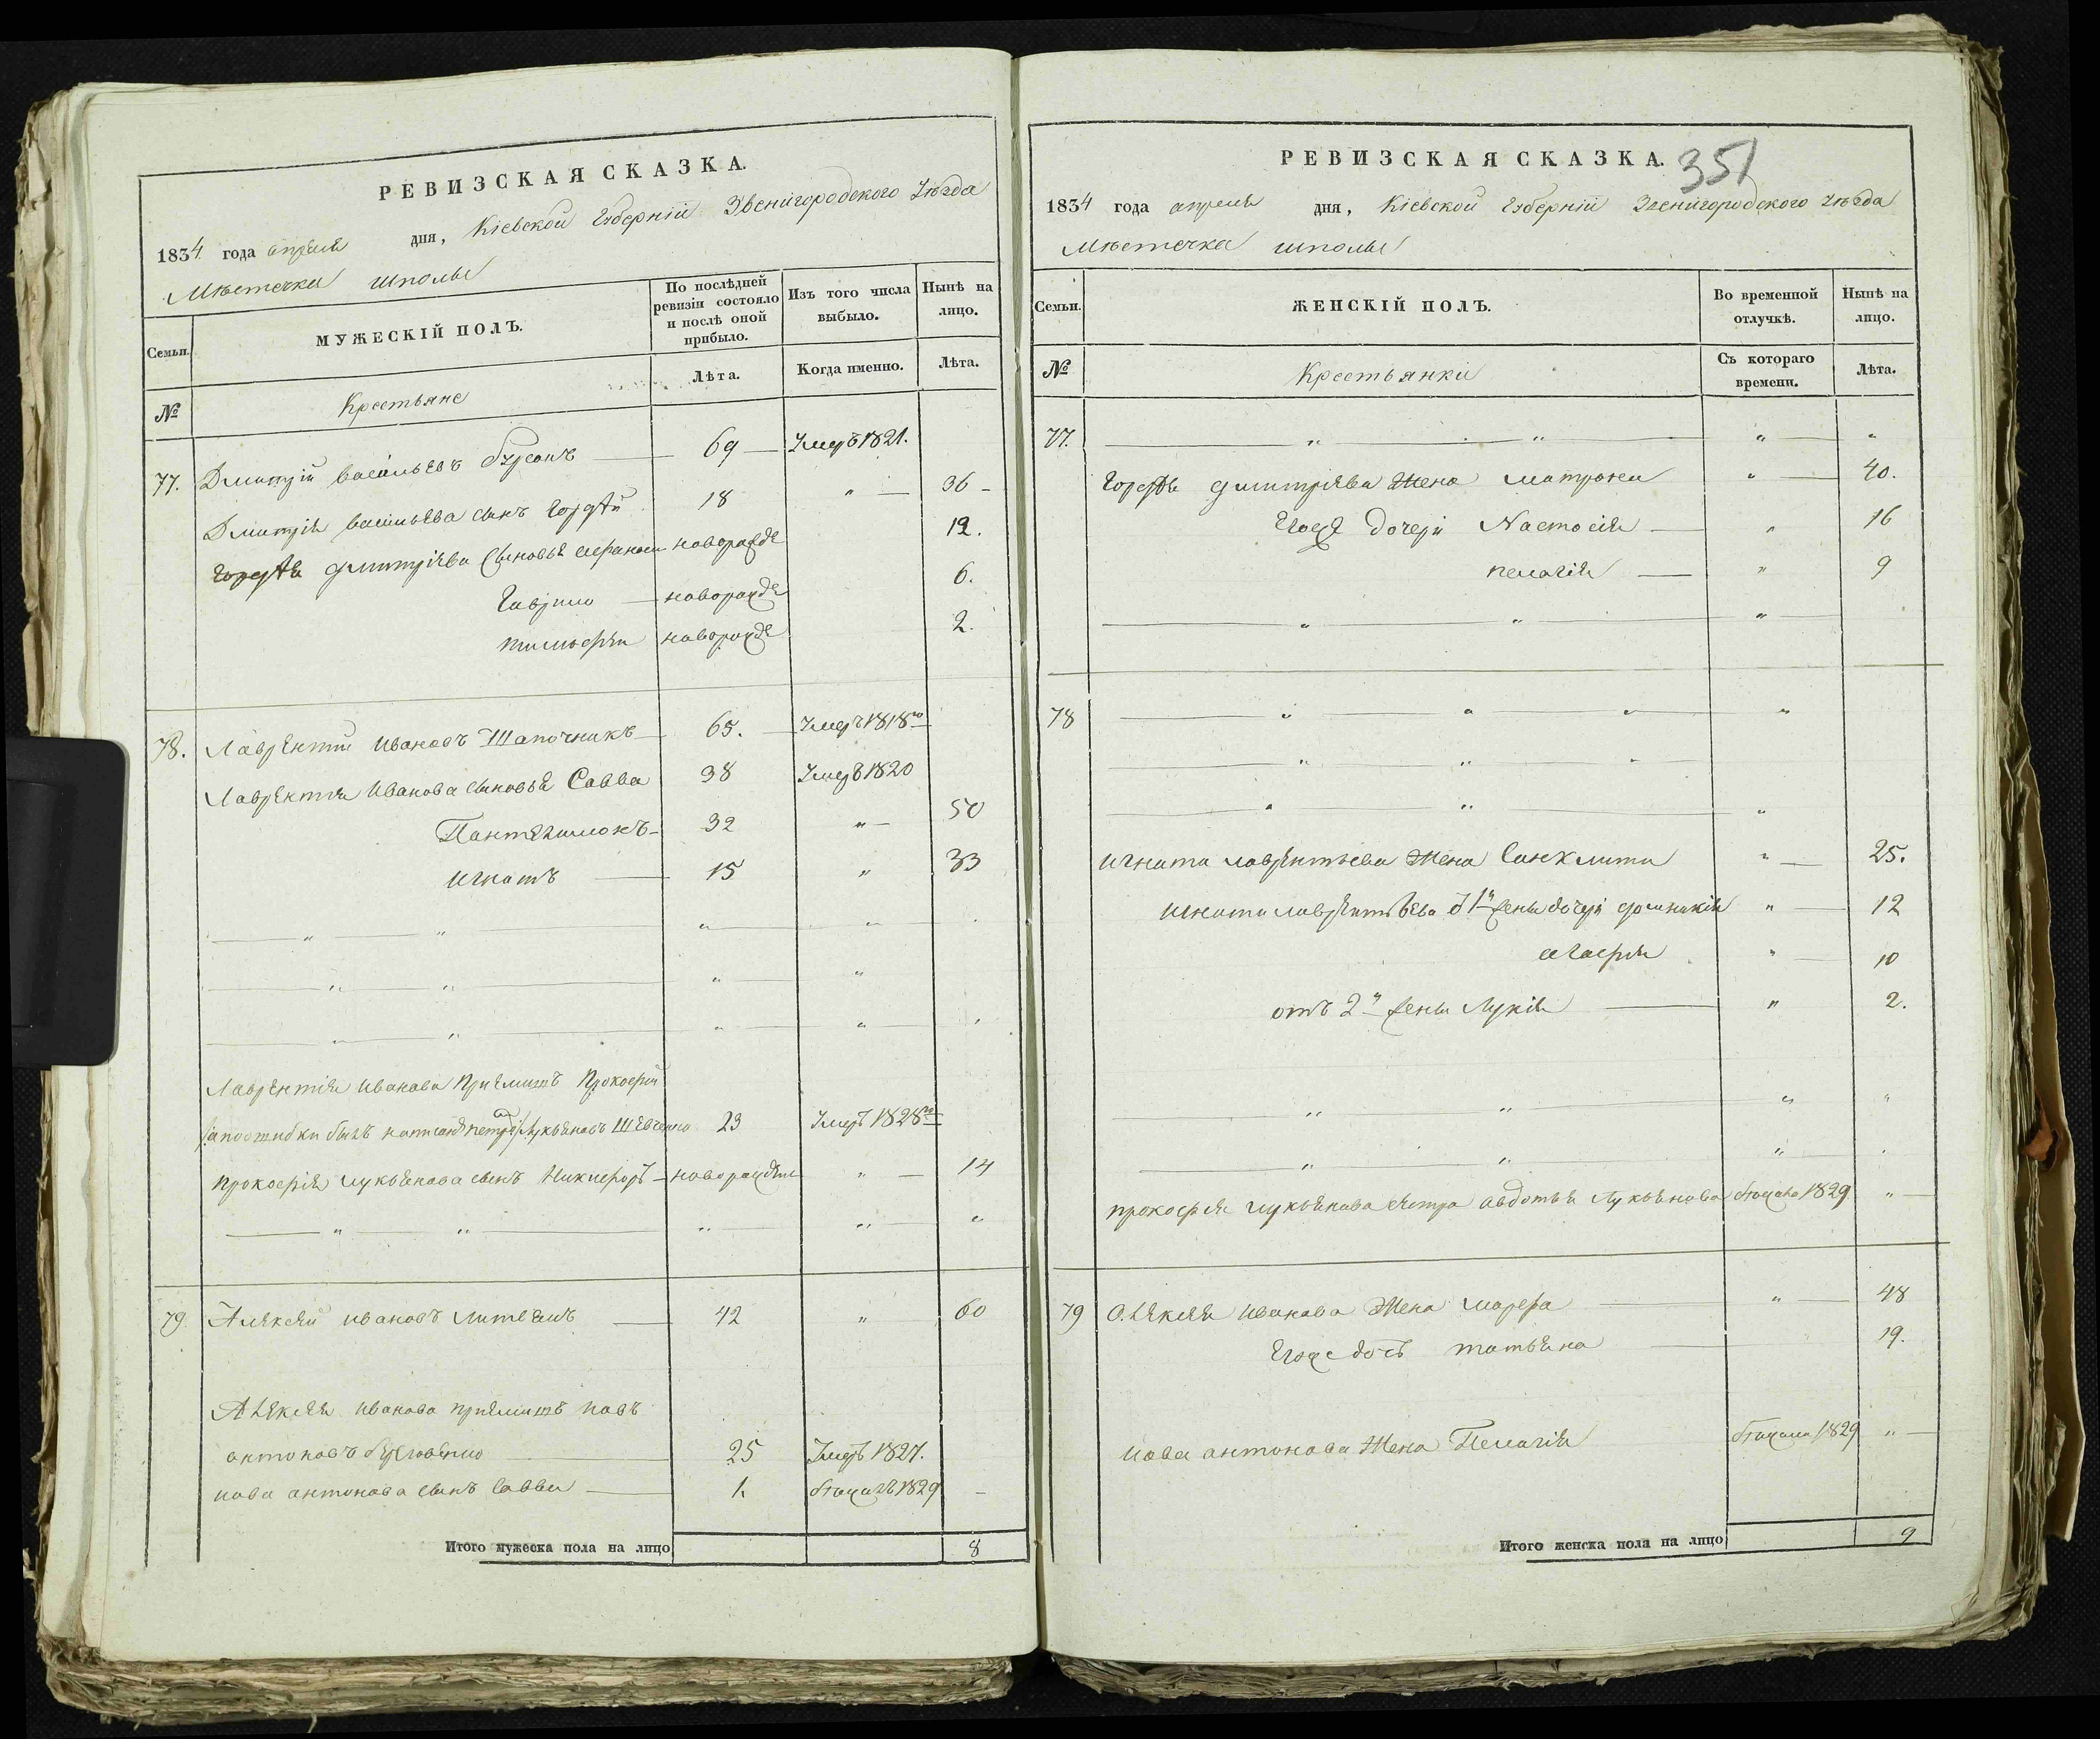 РЕВИЗСКАЯ СКАЗКА.
1834 года апреля дня, Кіевской Губерніи Звенигородского Уѣзда
Мѣстечка Шполы
Семьи.
МУЖЕСКІЙ ПОЛЪ.
По послѣдней ревизіи состояло и послѣ оной прибыло.
Изъ того числа выбыло.
Нынѣ на лицо.
№
Крестьяне
Лѣта.
Когда именно.
Лѣта.
77. Дмитрій Васильевъ 69 Умеръ 1821.
Дмитрія Васильева сынъ Гордѣй 18 " 36
Гордѣя Дмитріева сыновья новорожде 12.
Гаврило новорожде 6.
Тимофей новорожде 2.
78. Лаврентій Ивановъ Шапочникъ 65. Умеръ 1818го
Лаврентія Иванова сыновья Савва 38 Умеръ 1820
Пантелимонъ 32 " 50
Игнатъ 15 " 33
Лаврентія Иванова приемышъ Прокофій
/а поошибки былъ написанъ Петръ/ Лукьяновъ Шевченко 23 Умеръ 1828го
Прокофія Лукьянова сынъ Никифоръ новорожден " 14
79. Алексей Ивановъ Литвинъ 42 " 60
Алексея Иванова приемышъ Иовъ
Антоновъ 25 Умеръ 1827.
Иова Антонова сынъ Савва 1. 1829
Итого мужеска пола на лицо 8
РЕВИЗСКАЯ СКАЗКА. 351
1834 года апреля дня, Кіевской Губерніи Звенигородского Уѣзда
Мѣстечка Шполы
Семьи.
ЖЕНСКІЙ ПОЛЪ.
Во временной отлучкѣ.
Нынѣ на лицо.
№
Крестьянки
Съ котораго времени.
Лѣта.
77. " " " "
Гордѣя Дмитріева жена Матрона " 40.
Егоже дочери Настасія " 16
Пелагія " 9
78 " " " "
Игната Лаврентьева жена Санклита " 25.
Игната Лаврентьева 1й жены дочери Домникія " 12
Агафія " 10
отъ 2й жены Лукія " 2.
Прокофія Лукьянова сестра Авдотья Лукьянова 1829 "
79 Алексея Иванова жена Марфа " 48
Егоже дочь Татьяна 19.
Иова Антонова жена Пелагія 1829 "
Итого женска пола на лицо 9